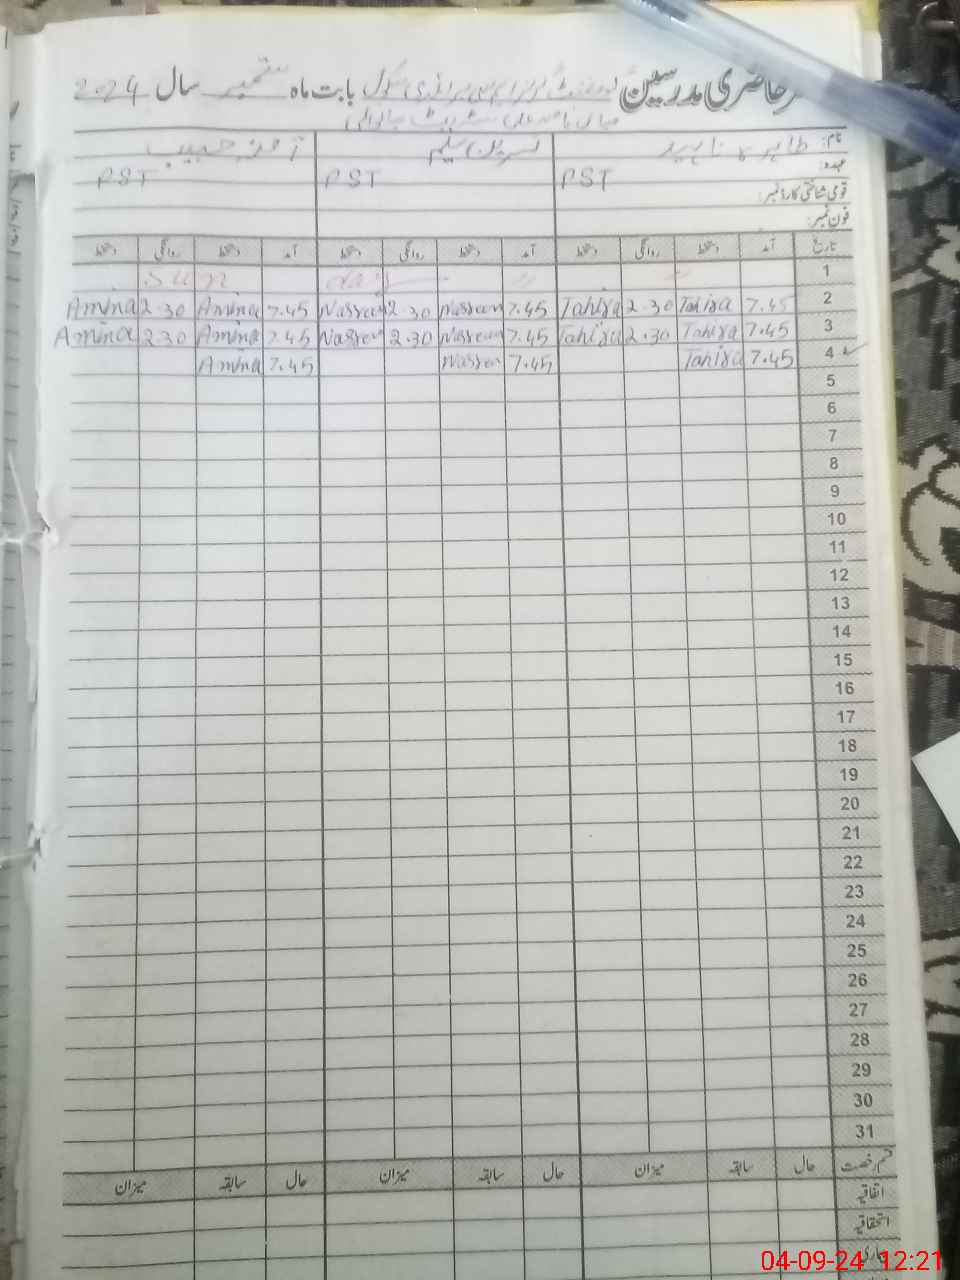 حاضری مدرسین گورنمنٹ گرلز پرائمری سکول بابت ماہ ستمبر سال 2024
نام: طاہرہ ناہید نسرین سلیم آمنہ حبیب
عہدہ: PST PST PST
قومی شناختی کارڈ نمبر:
فون نمبر:
تاریخ آمد دستخط روانگی دستخط آمد دستخط روانگی دستخط آمد دستخط روانگی دستخط
1 Sunday
2 7.45 Tahira 2.30 Tahira 7.45 Nasreen 2.30 Nasreen 7.45 Amina 2.30 Amina
3 7.45 Tahira 2.30 Tahira 7.45 Nasreen 2.30 Nasreen 7.45 Amina 2.30 Amina
4 7.45 Tahira 7.45 Nasreen 7.45 Amina
5
6
7
8
9
10
11
12
13
14
15
16
17
18
19
20
21
22
23
24
25
26
27
28
29
30
31
قسم رخصت حال سابقہ میزان حال سابقہ میزان حال سابقہ میزان
اتفاقیہ
استحقاقیہ
04-09-24 12:21